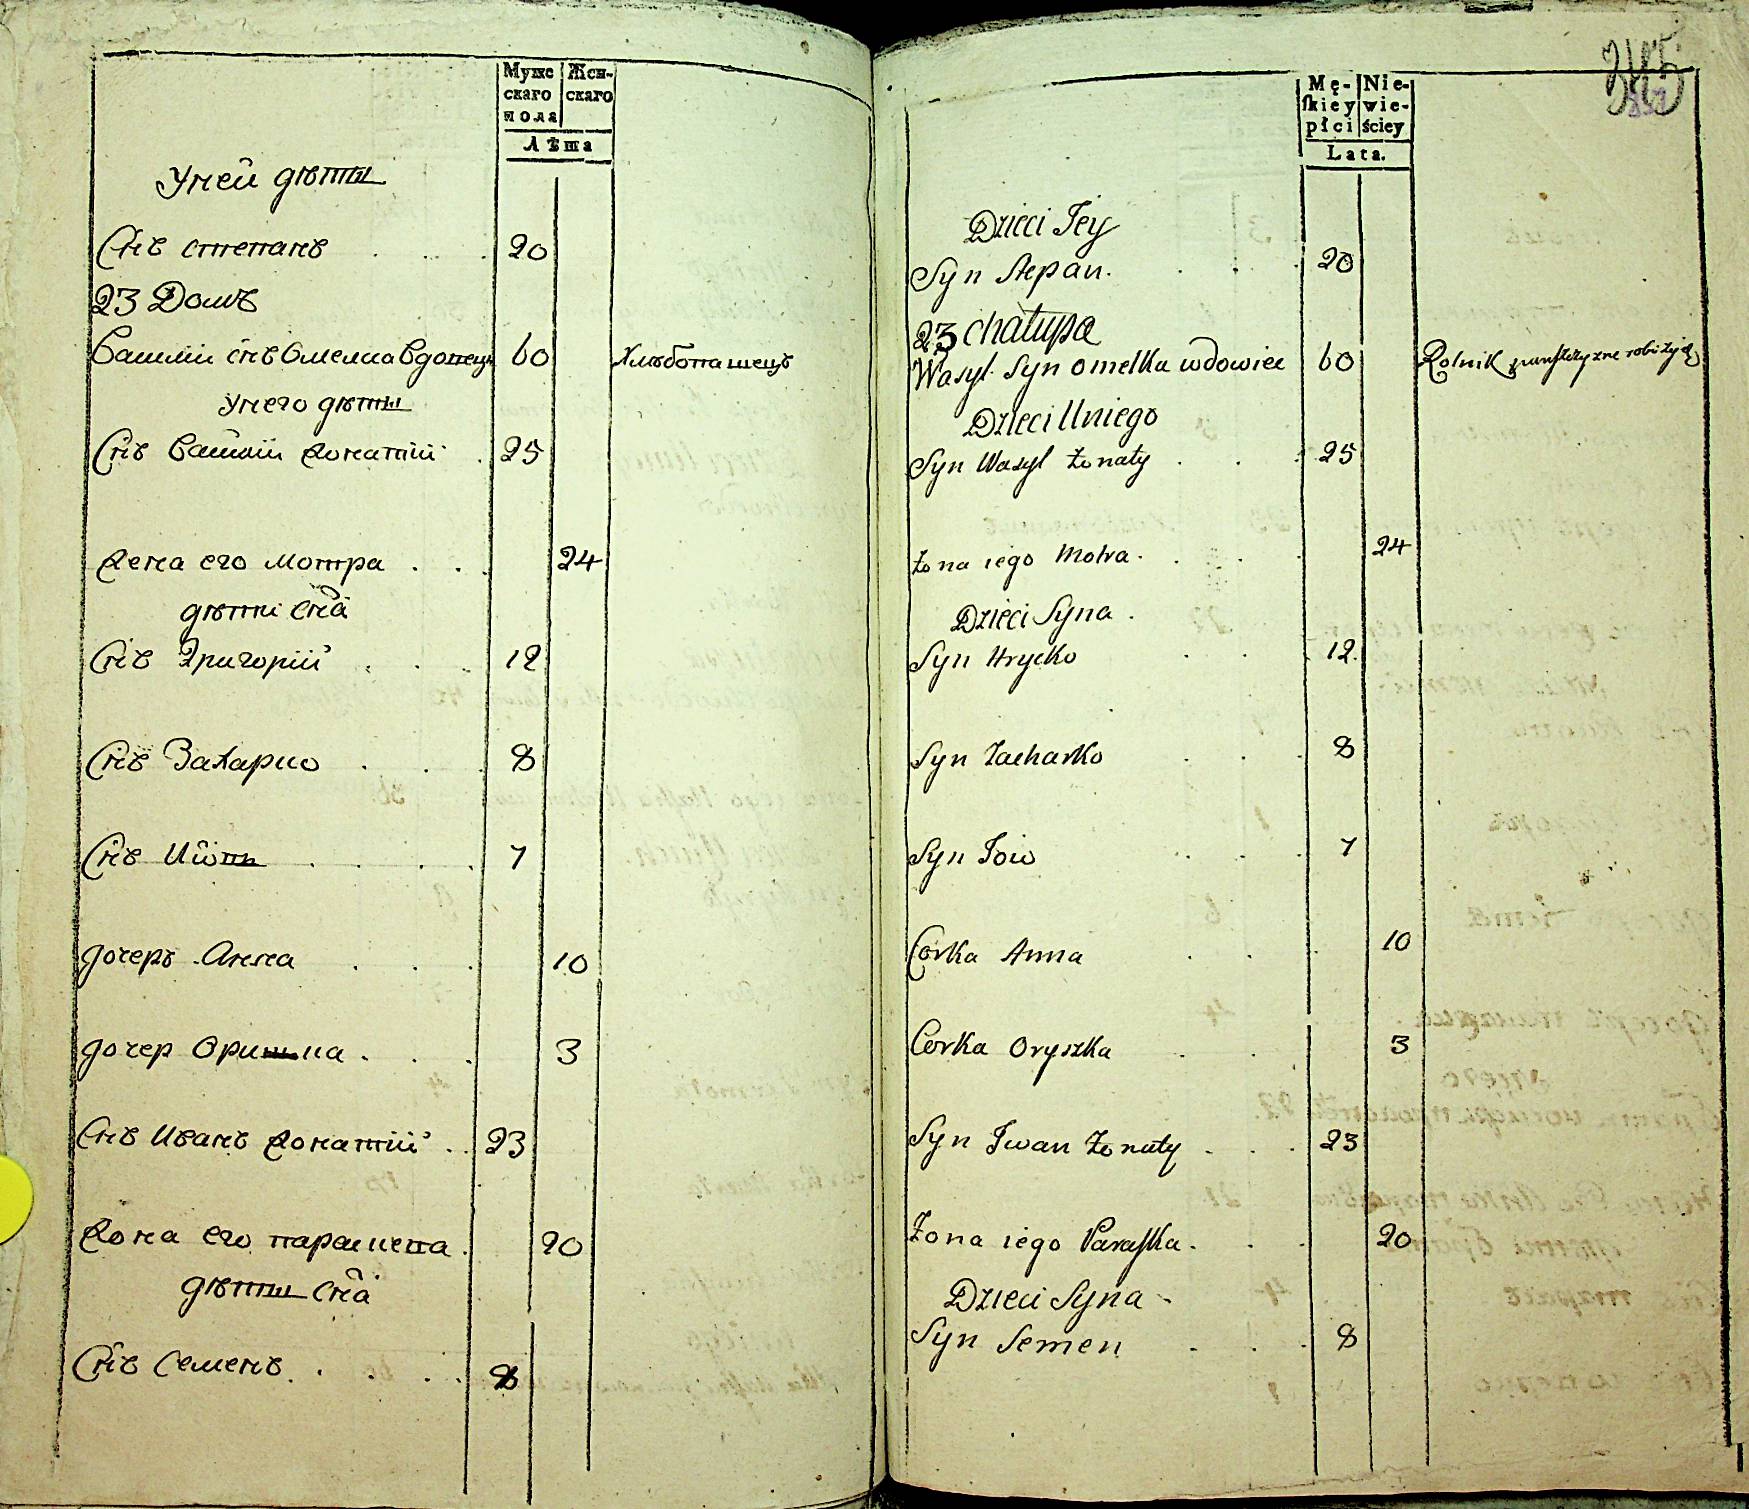 Муже Жен-
скаго скаго
пола
Лѣта
У неи дѣти
Снъ степанъ 20
23 Домъ
Василiи снъ Омелка вдовецъ 60 Хлѣбопашецъ
У него дѣти
Снъ Василiи Жонатiи 25
Жена его Мотра 24
дѣти сна
Снъ Григорiи 12
Снъ Захарко 8
Снъ Иовъ 7
дочеръ Анна 10
дочер Оришка 3
Снъ Иванъ Жонатiи 23
Жона его парашка 20
дѣти сна
Снъ Семенъ 8
Mę- Nie-
ſkiey wie-
płci ściey
Lata.
Dzieci Jey
Syn Stepan. 20
23 chałupa
Wasyl Syn omelka wdowiec 60 Rolnik
Dzieci Uniego
Syn Wasyl żonaty 25
żona iego Motra 24
Dzieci Syna
Syn Hrycko 12
Syn Zacharko 8
Syn Jow 7
Corka Anna 10
Corka Oryszka 3
Syn Jwan żonaty 23
Żona iego Paraſka 20
Dzieci Syna
Syn Semen 8